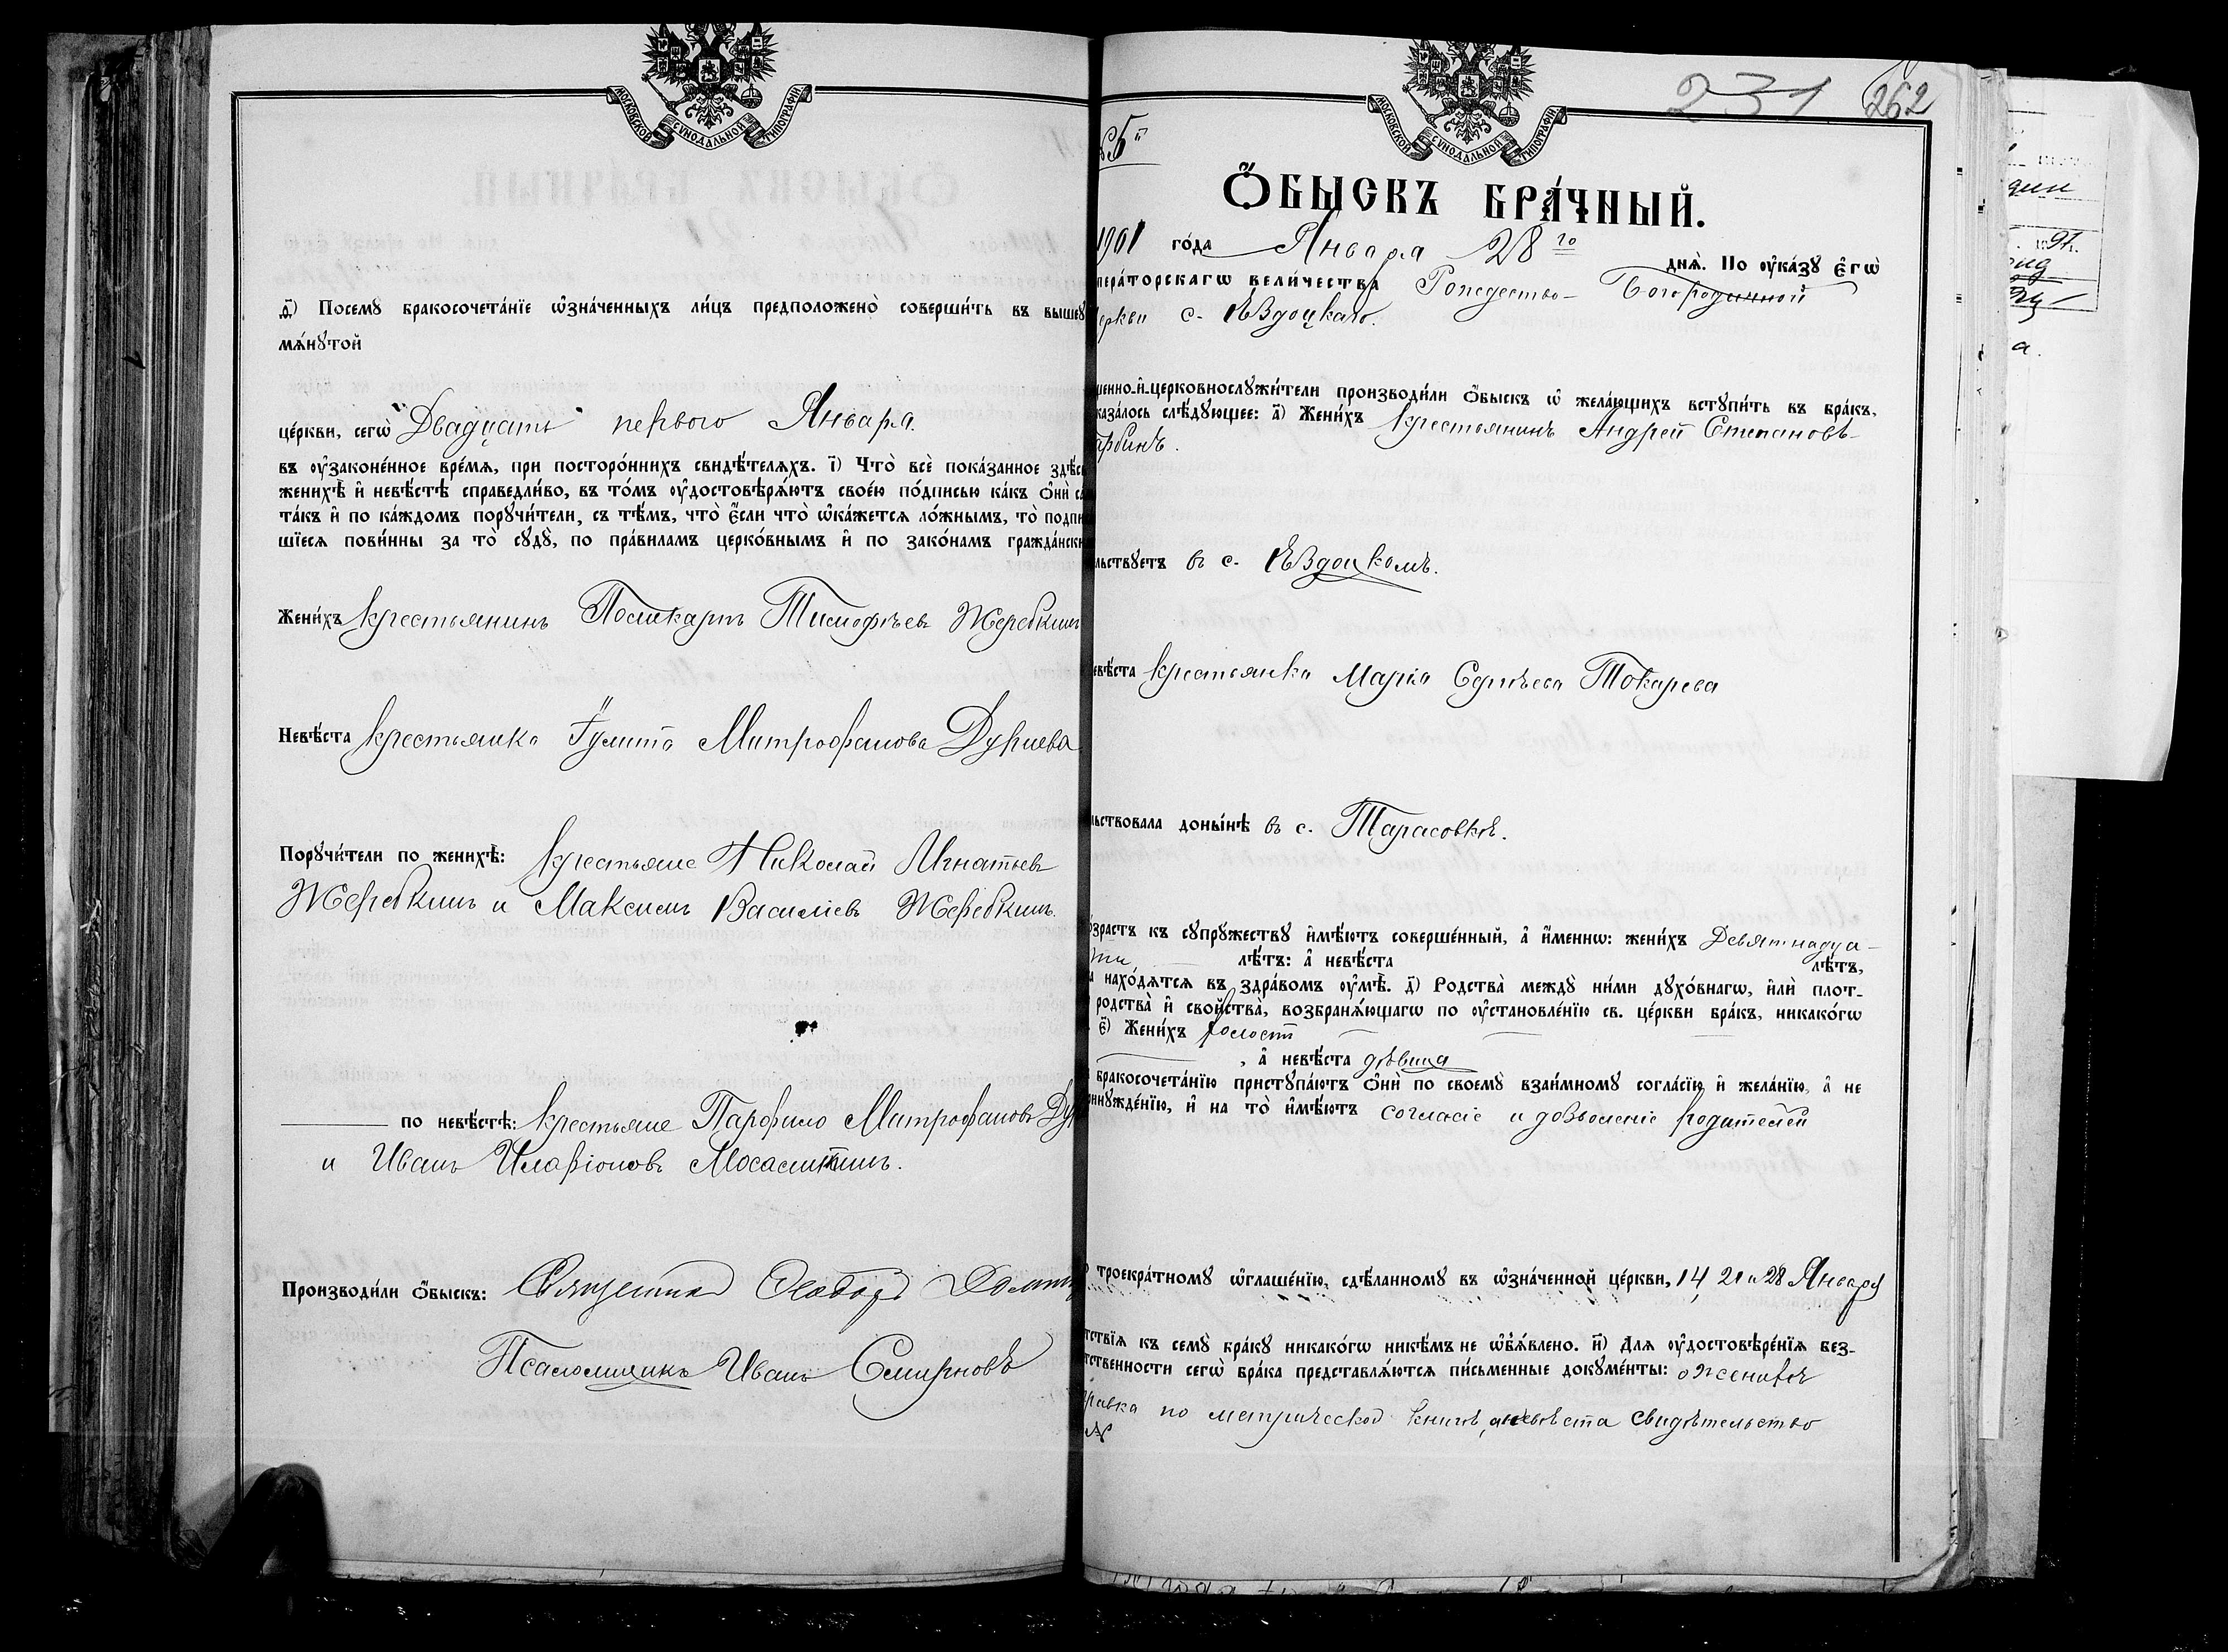 МОСКОВСКОЙ СѴНОДАЛЬНОЙ ТИПОГРАФІИ
д҃) Посемꙋ бракосочета́нїе ѡ҆зна́ченныхъ ли́цъ предположено̀ соверши́ть въ вышеꙋ
мѧ́нꙋтой
це́ркви, сегѡ̀ Двадцать перваго Января.
въ ᲂу҆законе́нное вре́мѧ, при посторо́ннихъ свидѣ́телѧхъ. і҃) Что̀ всѐ пока́занное здѣ́сь
женихѣ̀ и҆ невѣ́стѣ справедли́во, въ то́мъ ᲂу҆достовѣрѧ́ютъ свое́ю по́дписью ка́къ ѻ҆нѝ са
та́къ и҆ по ка́ждомъ порꙋчи́тели, съ тѣ́мъ, что̀ є҆́сли что̀ ѡ҆ка́жетсѧ ло́жнымъ, то̀ подпи
шїесѧ пови́нны за то̀ сꙋдꙋ̀, по пра́виламъ церко́внымъ и҆ по зако́намъ гражда́нски
Жени́хъ крестьянинъ Поликарпъ Тимофѣевъ Жеребкинъ
Невѣ́ста крестьянка Митрофанова
Порꙋчи́тели по женихѣ̀: крестьяне Николай Игнатьевъ
Жеребкинъ и Максимъ Василіевъ Жеребкинъ.
по невѣ́стѣ: крестьяне Митрофановъ
и Иванъ Иларіоновъ
Производи́ли ѻ҆́быскъ: Священникъ
Псаломщикъ Иванъ Смирновъ
231 262
МОСКОВСКОЙ СѴНОДАЛЬНОЙ ТИПОГРАФІИ
5й
Ѻ҆́БЫСКЪ БРА́ЧНЫЙ.
1901 го́да Января 28го днѧ̀. По ᲂу҆ка́зꙋ є҆гѡ̀
пера́торскагѡ вели́чества Рождество-Богородичной
еркви с. Ѣвдоцкаго.
щенно-и҆-церковнослꙋжи́тели производи́ли ѻ҆́быскъ ѡ҆ жела́ющихъ встꙋпи́ть въ бра́къ,
каза́лось слѣ́дꙋющее: а҃) Жени́хъ крестьянинъ Андрей Степановъ
арбинъ.
льствꙋетъ въ с. Ѣвдоцкомъ.
евѣ́ста крестьянка Марія Сергѣева Токарева
льствовала доны́нѣ въ с. Тарасовкѣ.
о́зрастъ къ сꙋпрꙋжествꙋ и҆мѣ́ютъ соверше́нный, а҆ и҆́меннѡ: жени́хъ Девятнадца-
ти лѣ́тъ: а҆ невѣ́ста лѣ́тъ,
а нахо́дѧтсѧ въ здра́вомъ ᲂу҆мѣ̀. д҃) Родства̀ междꙋ̀ ни́ми дꙋхо́внагѡ, и҆лѝ плот-
родства̀ и҆ свойства̀, возбранѧ́ющагѡ по ᲂу҆становле́нїю св. це́ркви бра́къ, никако́гѡ
є҃) Жени́хъ холостъ
, а҆ невѣ́ста дѣвица
бракосочета́нїю пристꙋпа́ютъ ѻ҆нѝ по своемꙋ̀ взаи́мномꙋ согла́сїю и҆ жела́нїю, а҆ не
инꙋжде́нїю, и҆ на то̀ и҆мѣ́ютъ согласіе и дозволеніе родителей
троекра́тномꙋ ѡ҆глаше́нїю, сдѣ́ланномꙋ въ ѡ҆зна́ченной це́ркви, 14, 21 и 28 Января
тствїѧ къ семꙋ̀ бра́кꙋ никако́гѡ никѣ́мъ не ѡ҆б̾ѧ́влено. и҃) Длѧ ᲂу҆достовѣре́нїѧ без-
тственности сегѡ̀ бра́ка представлѧ́ютсѧ пи́сьменные докꙋме́нты: о женихѣ
правка по метрической книгѣ, а невѣста свидѣтельство
№